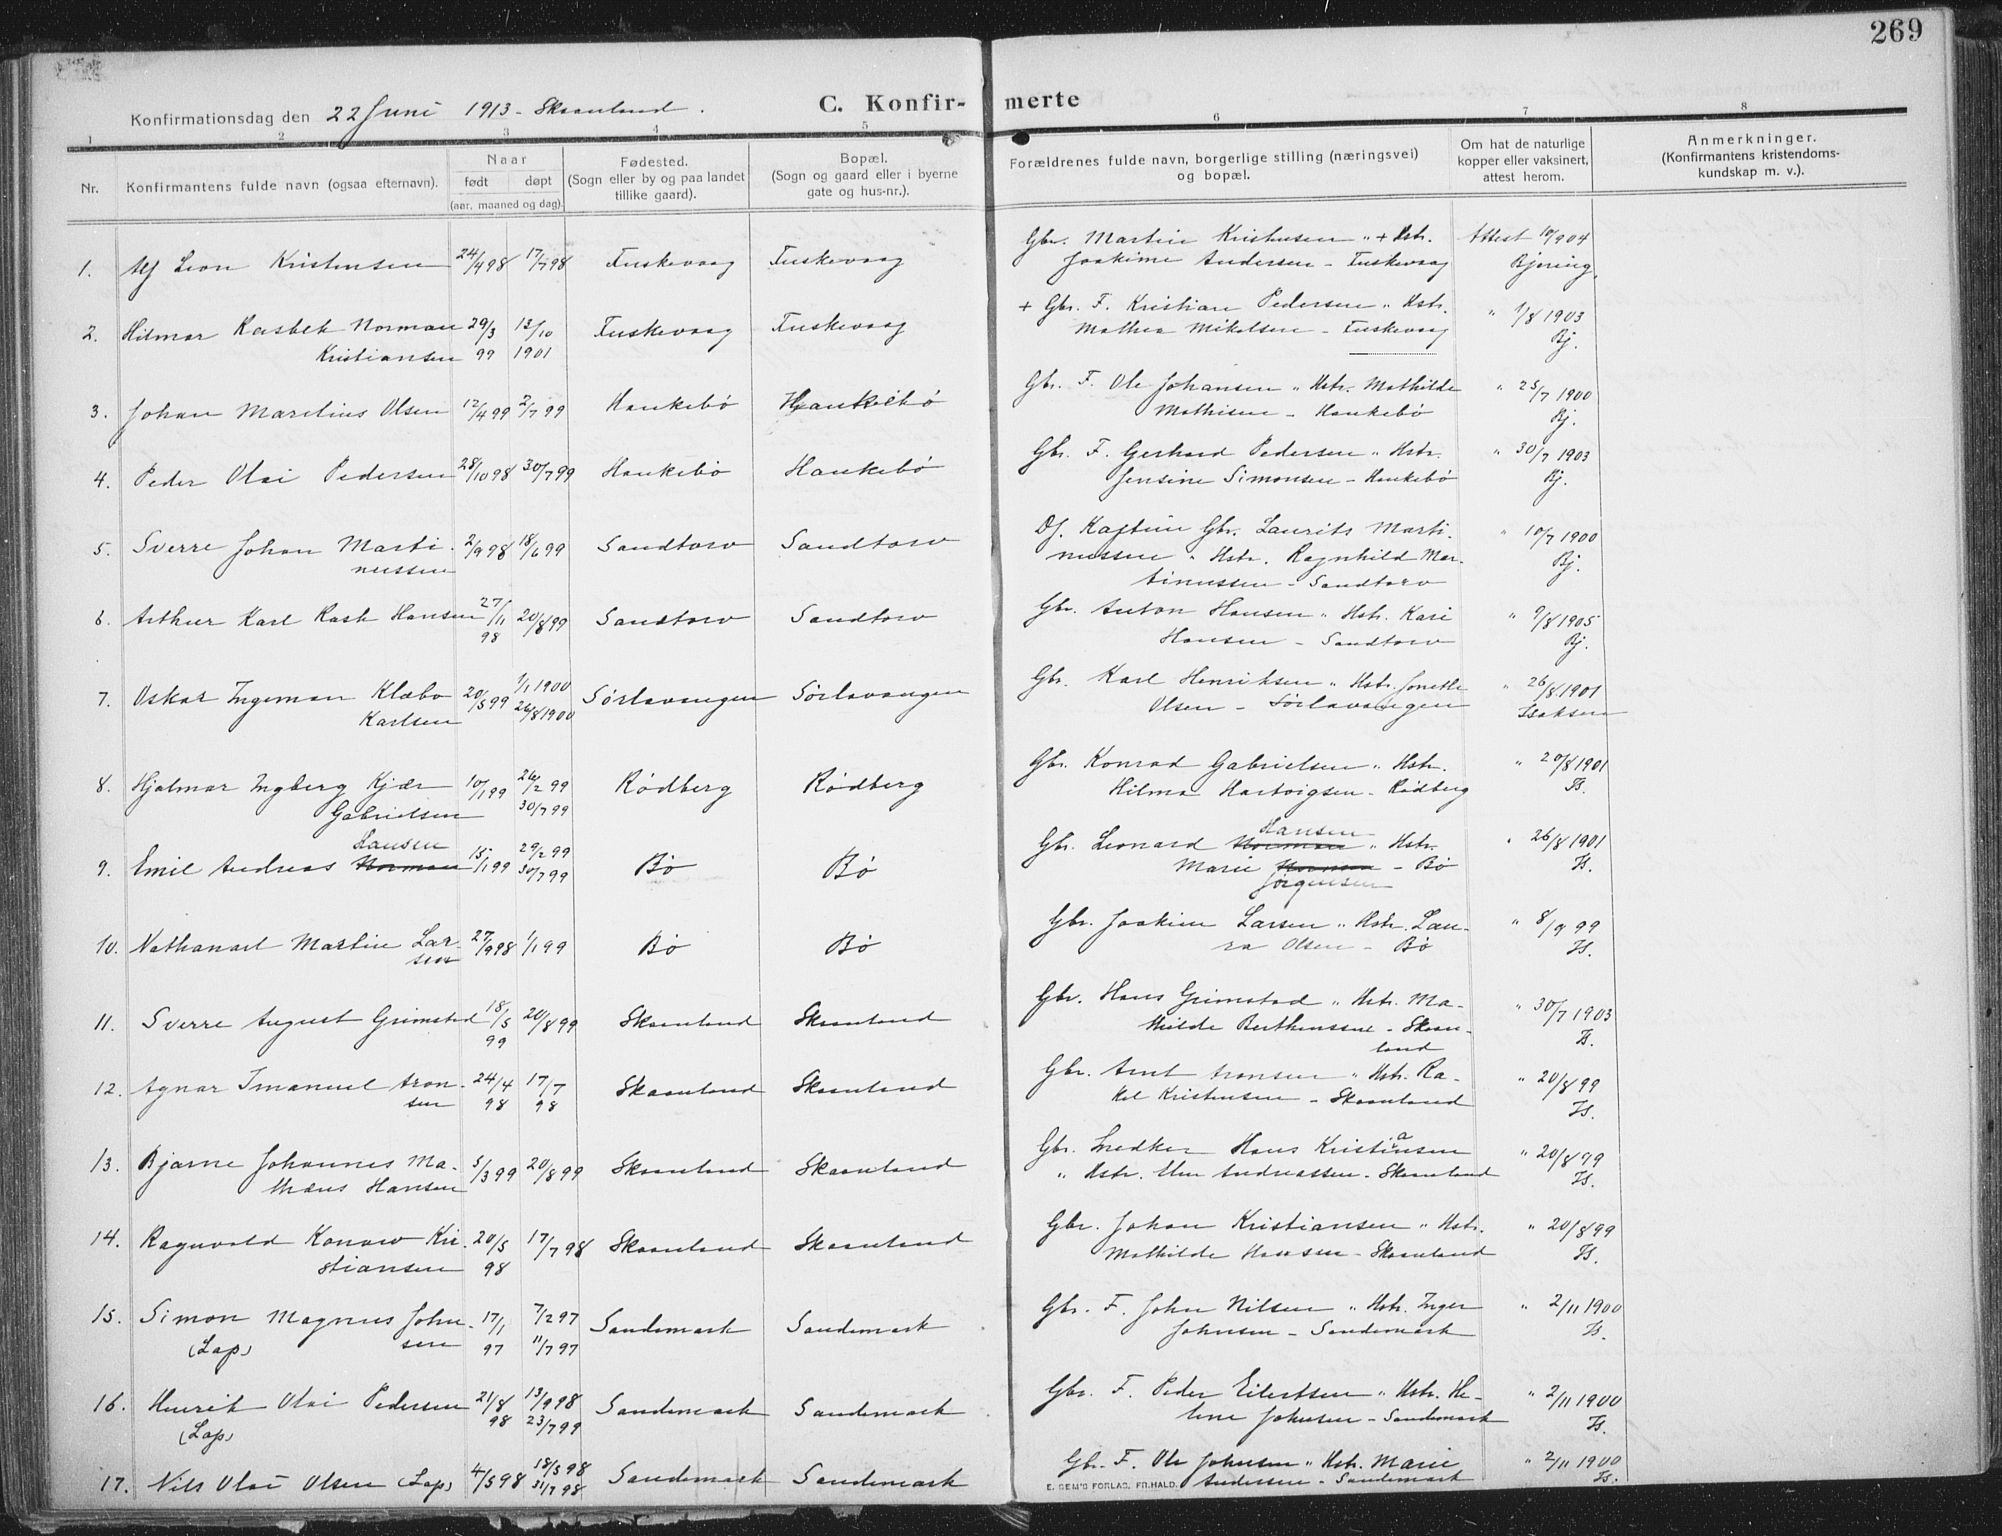 269
Konfirmationsdag den 22 Juni 1913 - Skaanland.
C. Konfir- merte
1 2 3 4 5 6 7 8
Nr.
Konfirmantens fulde navn (ogsaa efternavn).
Naar
født døpt
(aar, maaned og dag).
Fødested.
(Sogn eller by og paa landet
tillike gaard).
Bopæl.
(Sogn og gaard eller i byerne
gate og hus-nr.).
Forældrenes fulde navn, borgerlige stilling (næringsvei)
og bopæl.
Om hat de naturlige
kopper eller vaksinert,
attest herom.
Anmerkninger.
(Konfirmantens kristendoms-
kundskap m. v.).
1. Leon Kristensen 24/4 98 17/7 98 Fuskevaag Fuskevaag Gbr. Martin Kristensen " + Hstr. Attest 10/9 04
Joakime Andersen - Fuskevaag Bjøring
2. Hilmar Rasbek Norman 29/3 13/10 Fuskevaag Fuskevaag + Gbr. F. Kristian Pedersen " Hstr. " 1/8 1903
Kristiansen 99 1901 Mathea Mikelsen - Fuskevaag Bj.
3. Johan Marelius Olsen 12/4 99 2/7 99 Haukebø Haukebø Gbr. F. Ole Johansen " Hstr. Mathilde " 25/7 1900
Mathisen - Haukebø Bj.
4. Peder Olai Pedersen 28/10 98 30/7 99 Haukebø Haukebø Gbr. F. Gerhard Pedersen " Hstr. " 30/7 1903
Jensine Simonsen - Haukebø Bj.
5. Sverre Johan Marti- 2/9 98 18/6 99 Sandtorv Sandtorv Df. Kaptein Gbr. Laurits Marti- " 10/7 1900
nussen nussen " Hstr. Ragnhild Mar- Bj.
tinussen - Sandtorv
6. Arthur Karl Rask Hansen 27/11 98 20/8 99 Sandtorv Sandtorv Gbr. Anton Hansen " Hstr. Kari " 9/8 1905
Hansen - Sandtorv Bj.
7. Oskar Ingeman Klæbo 20/5 99 1/1 1900 Sørlavangen Sørlavangen Gbr. Karl Henriksen " Hstr. Jonette " 26/8 1901
Karlsen 26/8 1900 Olsen - Sørlavangen Isaksen
8. Hjalmar Ingberg Kjær 10/1 99 26/2 99 Rødberg Rødberg Gbr. Konrad Gabrielsen " Hstr. " 20/8 1901
Gabrielsen 30/7 99 Hilma Hartvigsen - Rødberg Is.
Hansen Hansen
9. Emil Andreas Norman 15/1 99 29/2 99 Bø Bø Gbr. Leonard Norman " Hstr. " 26/8 1901
30/7 99 Marie Norman - Bø Is.
Jørgensen
10. Nathanael Martin Lar- 27/9 98 1/1 99 Bø Bø Gbr. Joakim Larsen " Hstr. Lau- " 8/9 99
sen ra Olsen - Bø Is.
11. Sverre August Grimstad 18/5 99 20/8 99 Skaanland Skaanland Gbr. Hans Grimstad " Hstr. Ma- " 30/7 1903
thilde Bertheussen - Skaan- Is.
land
12. Agnar Imanuel Aron- 24/4 17/7 Skaanland Skaanland Gbr. Arnt Aronsen " Hstr. Ra- " 20/8 99
sen 98 98 kel Kristensen - Skaanland Is.
13. Bjarne Johannes Ma- 5/3 99 20/8 99 Skaanland Skaanland Gbr. Snedker Hans Kristiansen " 20/8 99
thæus Hansen " Hstr. Andreassen - Skaanland Is.
14. Ragnvald Konow Kri- 20/5 17/7 98 Skaanland Skaanland Gbr. Johan Kristiansen " Hstr. " 20/8 99
stiansen 98 Mathilde Hansen - Skaanland Is.
15. Simon Magnus John- 17/1 7/2 97 Sandemark Sandemark Gbr. F. John Nilsen " Hstr. Inger " 2/11 1900
(Lap) sen 97 11/7 97 Johnsen - Sandemark Is.
16. Henrik Olai Pedersen 21/8 13/9 98 Sandemark Sandemark Gbr. F. Peder Eilertsen " Hstr. He- " 2/11 1900
(Lap) 98 23/7 99 lene Johnsen - Sandemark Is.
17. Nils Olai Olsen (Lap) 4/5 98 18/5 98 Sandemark Sandemark Gbr. F. Ole Johnsen " Hstr. Marie " 2/11 1900
31/7 98 Andersen - Sandemark Is.
E. SEM'S FORLAG, FR.HALD.